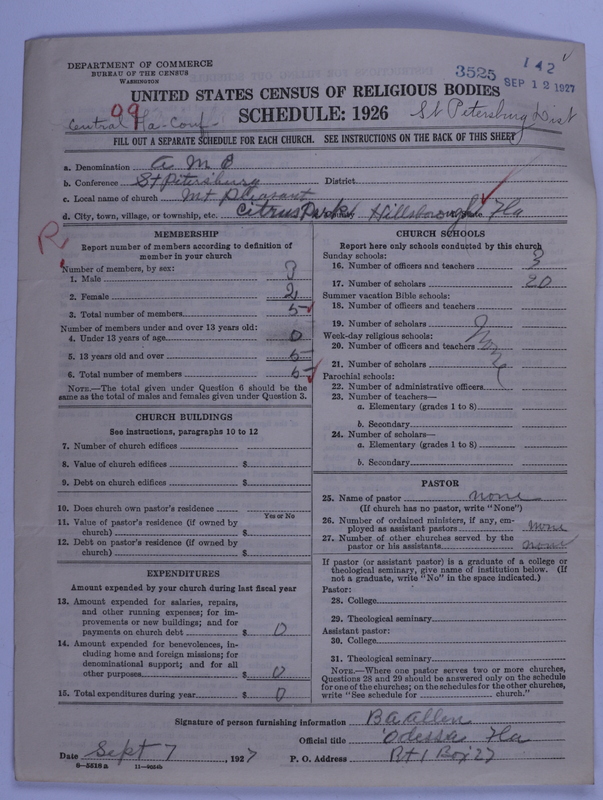 DEPARTMENT OF COMMERCE
BUREAU OF THE CENSUS
WASHINGTON
3525
142
SEP 12 1927
UNITED STATES CENSUS OF RELIGIOUS BODIES
09
Central Fla-Conf
SCHEDULE: 1926
St Petersburg Dist
FILL OUT A SEPARATE SCHEDULE FOR EACH CHURCH. SEE INSTRUCTIONS ON THE BACK OF THIS SHEET
a. Denomination A M E
b. Conference St Petersburg District
c. Local name of church Mt Pleasant
d. City, town, village, or township, etc. Citrus Park County Hillsborough State Fla
R
MEMBERSHIP
Report number of members according to definition of
member in your church
Number of members, by sex:
1. Male 3
2. Female 2
3. Total number of members 5
Number of members under and over 13 years old:
4. Under 13 years of age 0
5. 13 years old and over 5
6. Total number of members 5
NOTE.—The total given under Question 6 should be the
same as the total of males and females given under Question 3.
CHURCH BUILDINGS
See instructions, paragraphs 10 to 12
7. Number of church edifices
8. Value of church edifices $
9. Debt on church edifices $
10. Does church own pastor's residence
Yes or No
11. Value of pastor's residence (if owned by
church) $
12. Debt on pastor's residence (if owned by
church) $
EXPENDITURES
Amount expended by your church during last fiscal year
13. Amount expended for salaries, repairs,
and other running expenses; for im-
provements or new buildings; and for
payments on church debt $ 0
14. Amount expended for benevolences, in-
cluding home and foreign missions; for
denominational support; and for all
other purposes $ 0
15. Total expenditures during year $ 0
CHURCH SCHOOLS
Report here only schools conducted by this church
Sunday schools:
16. Number of officers and teachers 3
17. Number of scholars 20
Summer vacation Bible schools:
18. Number of officers and teachers
19. Number of scholars
Week-day religious schools:
20. Number of officers and teachers
None
21. Number of scholars
Parochial schools:
22. Number of administrative officers
23. Number of teachers—
a. Elementary (grades 1 to 8)
b. Secondary
24. Number of scholars—
a. Elementary (grades 1 to 8)
b. Secondary
PASTOR
25. Name of pastor none
(If church has no pastor, write "None")
26. Number of ordained ministers, if any, em-
ployed as assistant pastors none
27. Number of other churches served by the
pastor or his assistants none
If pastor (or assistant pastor) is a graduate of a college or
theological seminary, give name of institution below. (If
not a graduate, write "No" in the space indicated.)
Pastor:
28. College
29. Theological seminary
Assistant pastor:
30. College
31. Theological seminary
NOTE.—Where one pastor serves two or more churches,
Questions 28 and 29 should be answered only on the schedule
for one of the churches; on the schedules for the other churches,
write "See schedule for church."
Signature of person furnishing information B A Allen
Official title Odessa Fla
Date Sept 7, 1927 P. O. Address Rt 1 Box 27